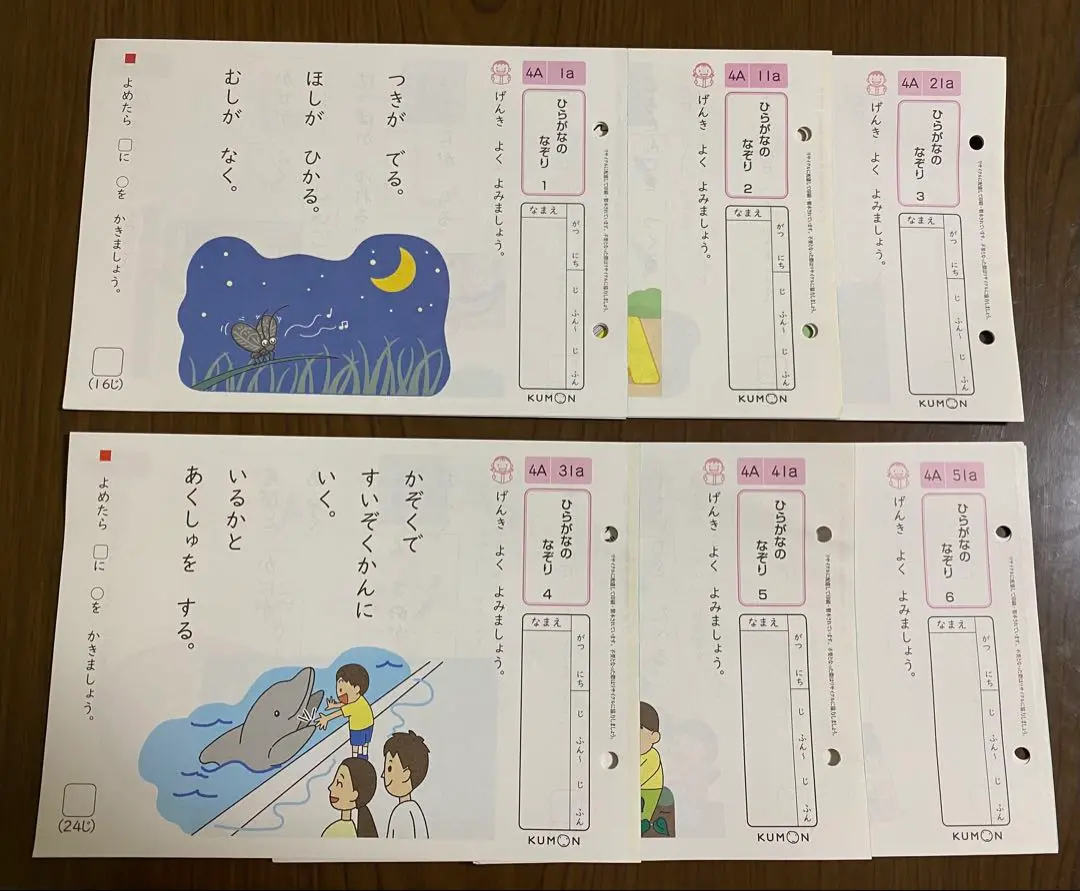 4A 1a
ひらがなの
なぞり 1
げんき よく よみましょう。
なまえ
がつ にち じ ふん〜 じ ふん
KUMON
つきが でる。
ほしが ひかる。
むしが なく。
■ よめたら □に ○を かきましょう。
(16じ)
4A 11a
ひらがなの
なぞり 2
げんき よく よみましょう。
なまえ
がつ にち じ ふん〜 じ ふん
KUMON
4A 21a
ひらがなの
なぞり 3
げんき よく よみましょう。
なまえ
がつ にち じ ふん〜 じ ふん
KUMON
4A 31a
ひらがなの
なぞり 4
げんき よく よみましょう。
なまえ
がつ にち じ ふん〜 じ ふん
KUMON
かぞくで
すいぞくかんに
いく。
いるかと
あくしゅを する。
■ よめたら □に ○を かきましょう。
(24じ)
4A 41a
ひらがなの
なぞり 5
げんき よく よみましょう。
なまえ
がつ にち じ ふん〜 じ ふん
KUMON
4A 51a
ひらがなの
なぞり 6
げんき よく よみましょう。
なまえ
がつ にち じ ふん〜 じ ふん
KUMON